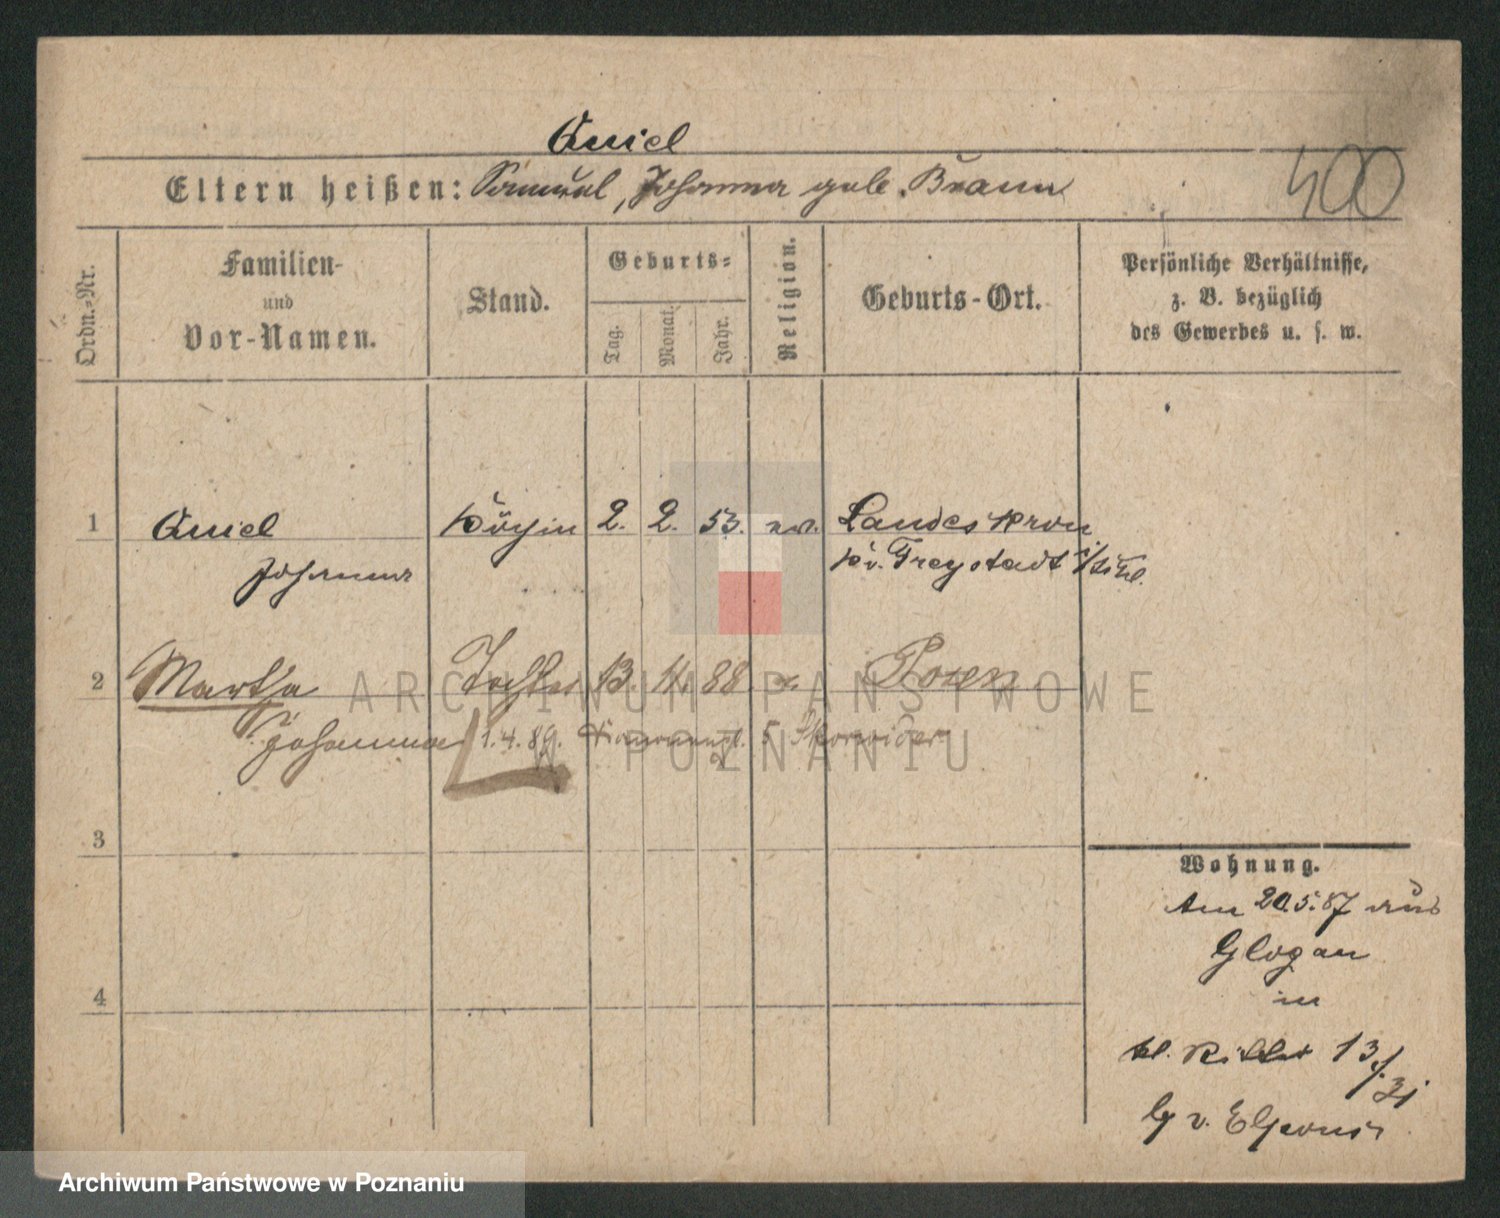 Quiel
Eltern heißen: Samuel, Johanna geb. Braun
400
Ordn.-Nr.
Familien-
und
Vor-Namen.
Stand.
Geburts-
Tag.
Monat.
Jahr.
Religion.
Geburts-Ort.
Persönliche Verhältnisse,
z. B. bezüglich
des Gewerbes u. s. w.
1 Quiel Köchin 2. 2. 53. ev. Landeskron
Johanna Kr. Freystadt
2 Martha Tochter 13. 11. 88 Posen
Johanna 1.4.89.
ARCHIWUM PAŃSTWOWE
W POZNANIU
3
4
Wohnung.
Am 20.5.87 aus
Glogau
in
kl. Ritter 13
b. v.
Archiwum Państwowe w Poznaniu